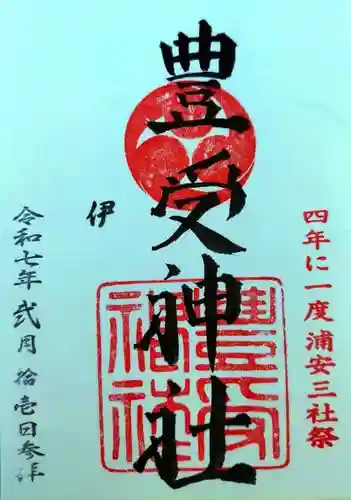 四年に一度浦安三社祭
豊受神社
伊
令和七年 弐月 拾壱日参拝